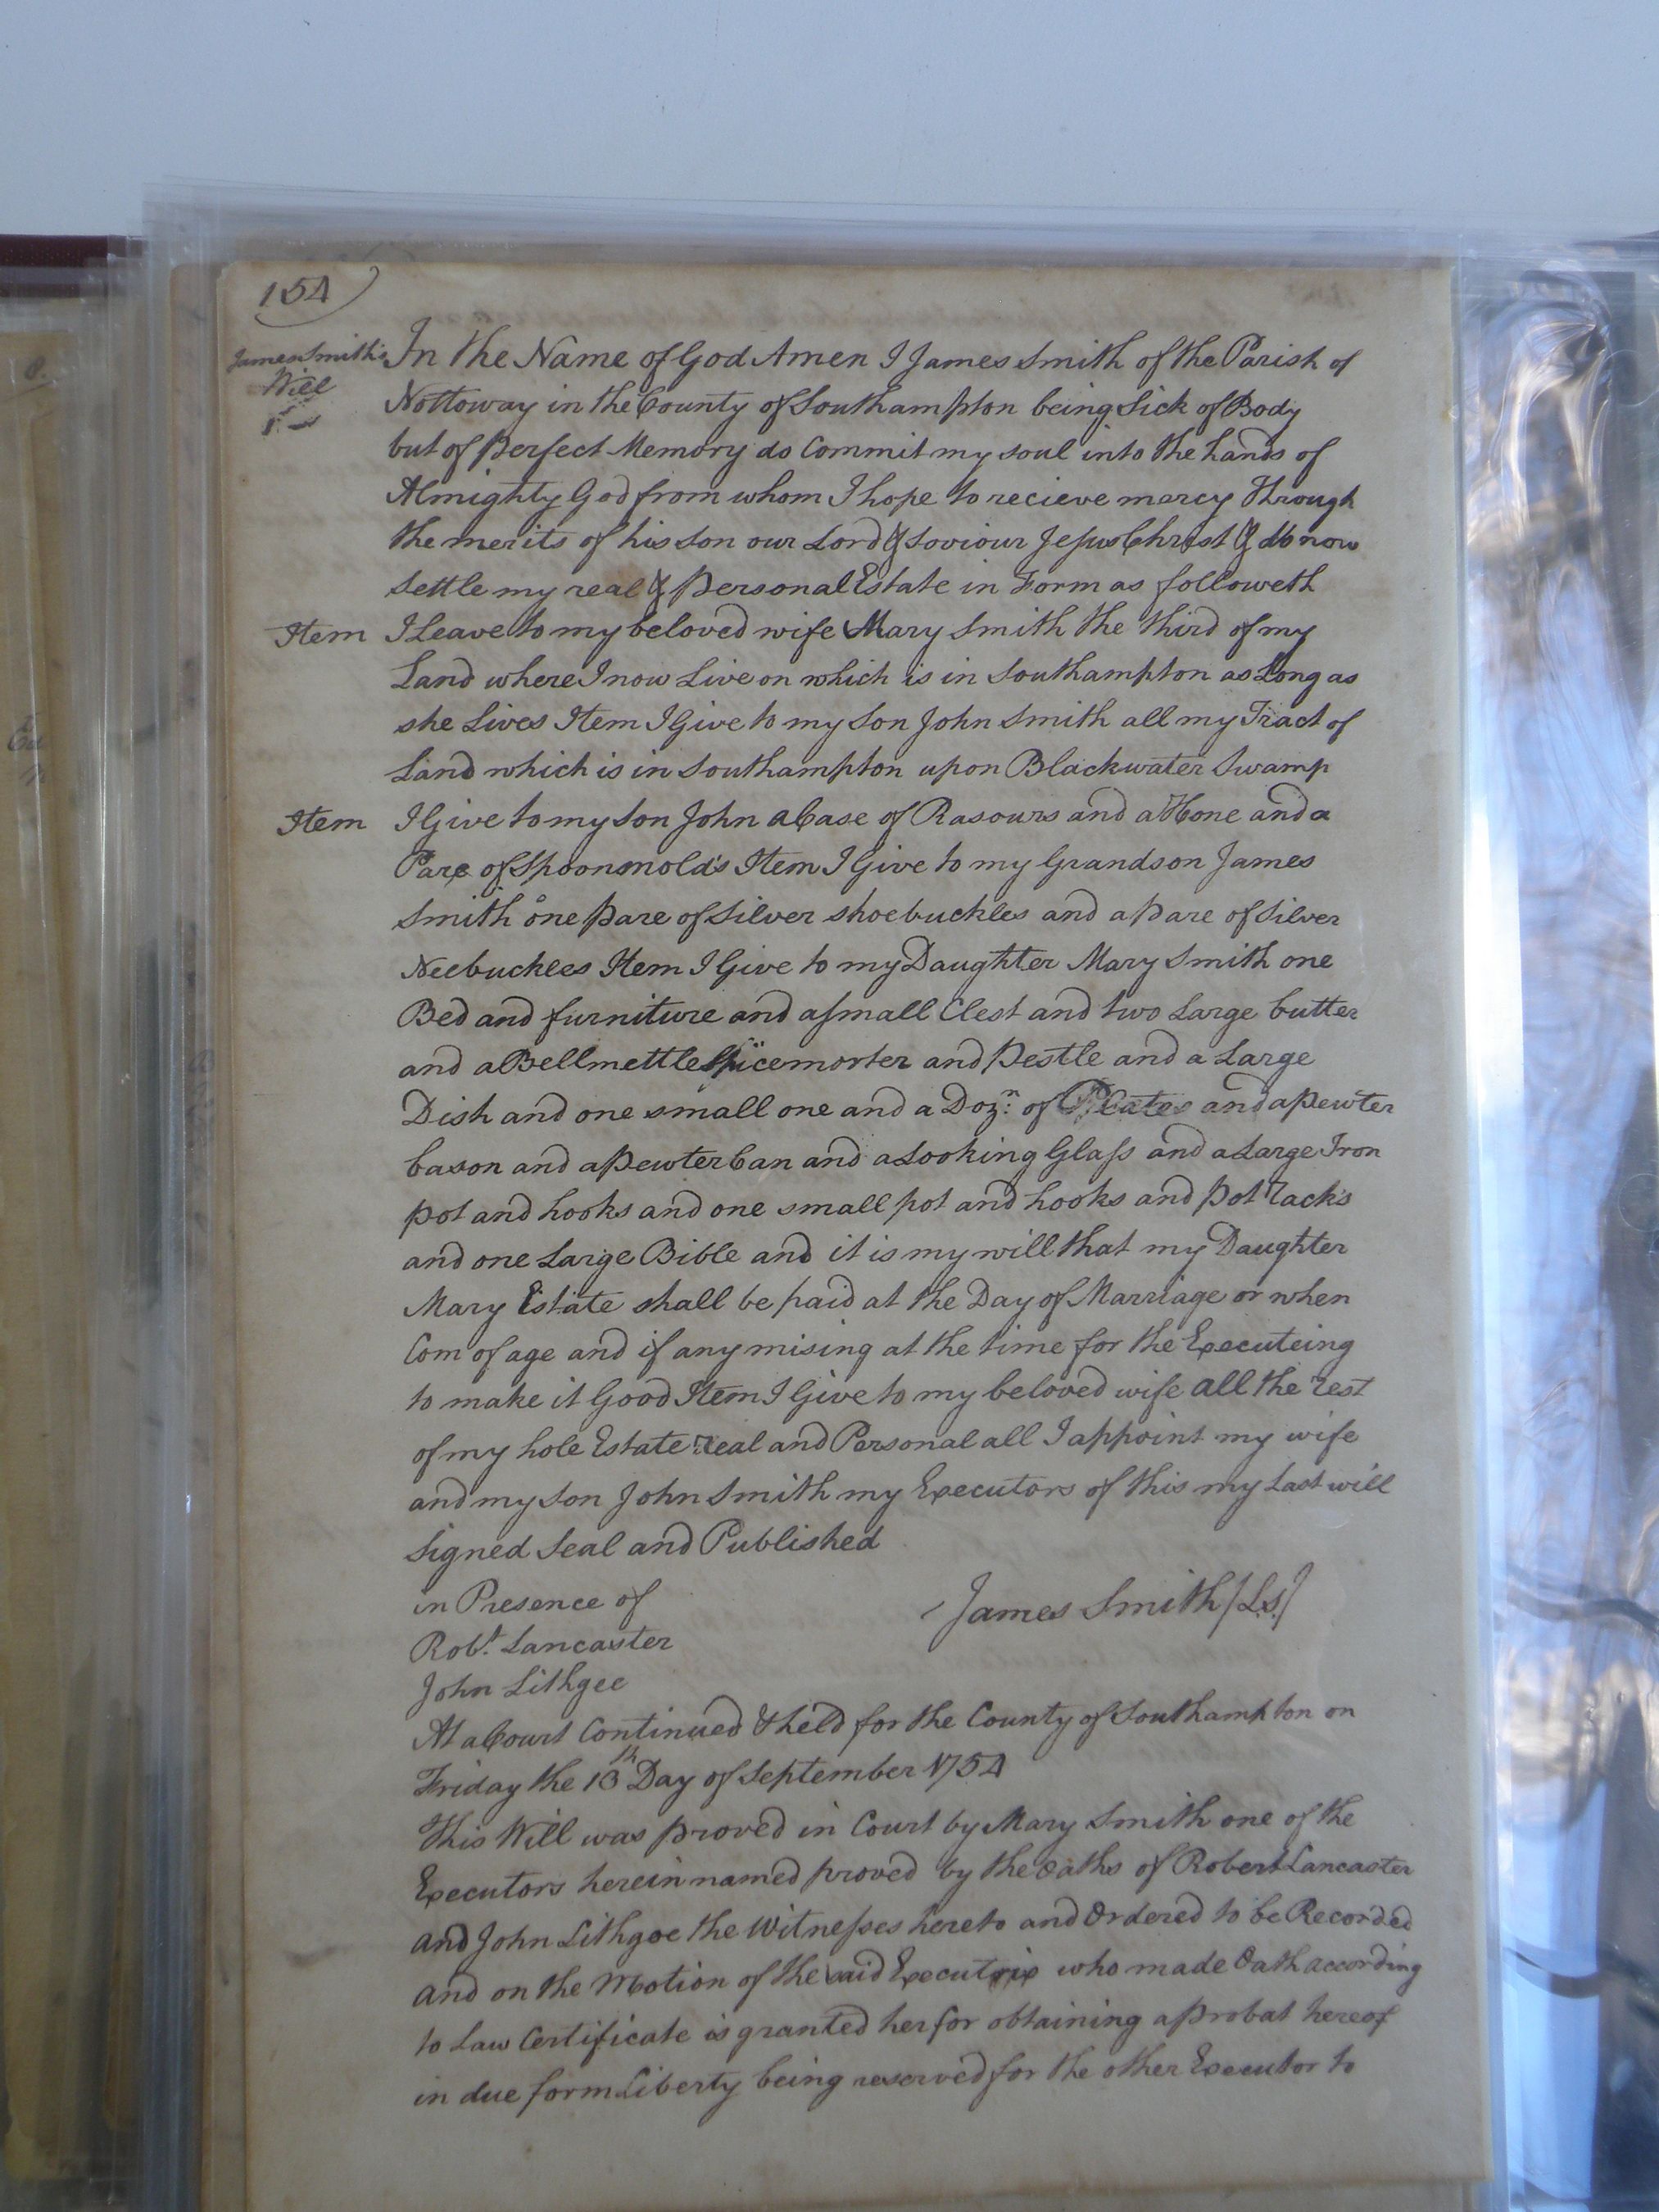 154
James Smith's
Will
In the Name of God Amen I James Smith of the Parish of
Nottoway in the County of Southampton being Sick of Body
but of Perfect Memory do Commit my soul into the hands of
Almighty God from whom I hope to recieve mercy Through
the merits of his Son our Lord & Soviour Jesus Christ & do now
Settle my real & Personal Estate in Form as followeth
Item I Leave to my beloved wife Mary Smith the third of my
Land where I now Live on which is in Southampton as Long as
she Lives Item I Give to my Son John Smith all my Tract of
Land which is in Southampton upon Blackwater Swamp
Item I Give to my Son John a Case of Rasours and a Hone and a
Pare of Spoonmold's Item I Give to my Grandson James
Smith one Pare of Silver Shoebuckles and a Pare of Silver
Neebuckles Item I Give to my Daughter Mary Smith one
Bed and furniture and a small Clest and two Large butter
and a Bellmettle Spicemorter and Pestle and a Large
Dish and one small one and a Dozn: of Plates and a Pewter
bason and a Pewter Can and a Looking Glass and a Large Iron
Pot and hooks and one small pot and hooks and Pot rack's
and one Large Bible and it is my will that my Daughter
Mary Estate shall be paid at the Day of Marriage or when
Com of age and if any mising at the time for the Executeing
to make it Good Item I Give to my beloved wife all the rest
of my hole Estate real and Personal all I appoint my wife
and my Son John Smith my Executors of this my Last will
Signed Seal and Published
in Presence of
James Smith /L.S./
Robt. Lancaster
John Lithgee
At a Court Continued & held for the County of Southampton on
Friday the 13th Day of September 1754
This Will was proved in Court by Mary Smith one of the
Executors herein named proved by the Oaths of Robert Lancaster
and John Lithgoe the Witnesses hereto and Ordered to be Recorded
and on the Motion of the said Executrix who made Oath according
to Law Certificate is granted her for obtaining a Probat hereof
in due form Liberty being reserved for the other Executor to